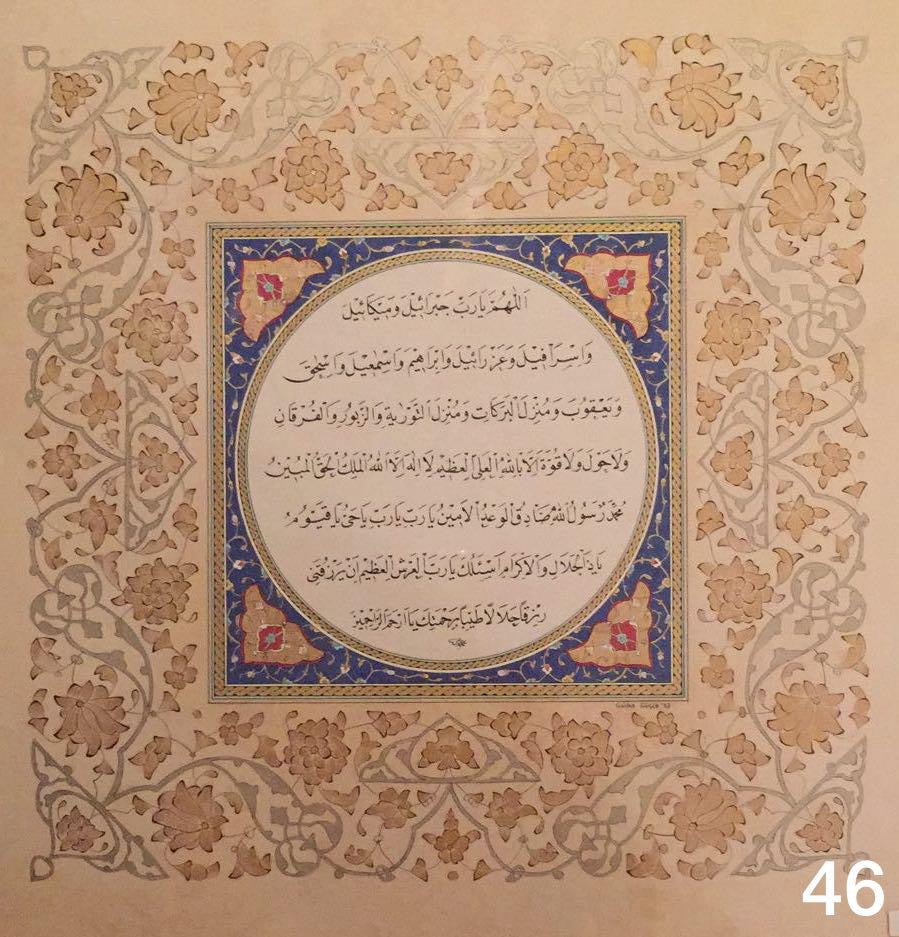 اَللّٰهُمَّ يَارَبَّ جَبْرَائِيْلَ وَمِيْكَائِيْلَ
وَاِسْرَافِيْلَ وَعَزْرَائِيْلَ وَاِبْرَاهِيْمَ وَاِسْمٰعِيْلَ وَاِسْحٰقَ
وَيَعْقُوْبَ وَمُنْزِلَ الْبَرَكَاتِ وَمُنْزِلَ التَّوْرٰيةِ وَالزَّبُوْرِ وَالْفُرْقَانِ
وَلَا حَوْلَ وَلَا قُوَّةَ اِلَّا بِاللّٰهِ الْعَلِيِّ الْعَظِيْمِ لَا اِلٰهَ اِلَّا اللّٰهُ الْمَلِكُ الْحَقُّ الْمُبِيْنُ
مُحَمَّدٌ رَسُوْلُ اللّٰهِ صَادِقُ الْوَعْدِ الْاَمِيْنُ يَارَبِّ يَارَبِّ يَارَبِّ يَاحَيُّ يَاقَيُّوْمُ
يَاذَا الْجَلَالِ وَالْاِكْرَامِ اَسْئَلُكَ يَارَبَّ الْعَرْشِ الْعَظِيْمِ اَنْ يَرْزُقَنِيْ
رِزْقًا حَلَالًا طَيِّبًا بِرَحْمَتِكَ يَا اَرْحَمَ الرَّاحِمِيْنَ
46